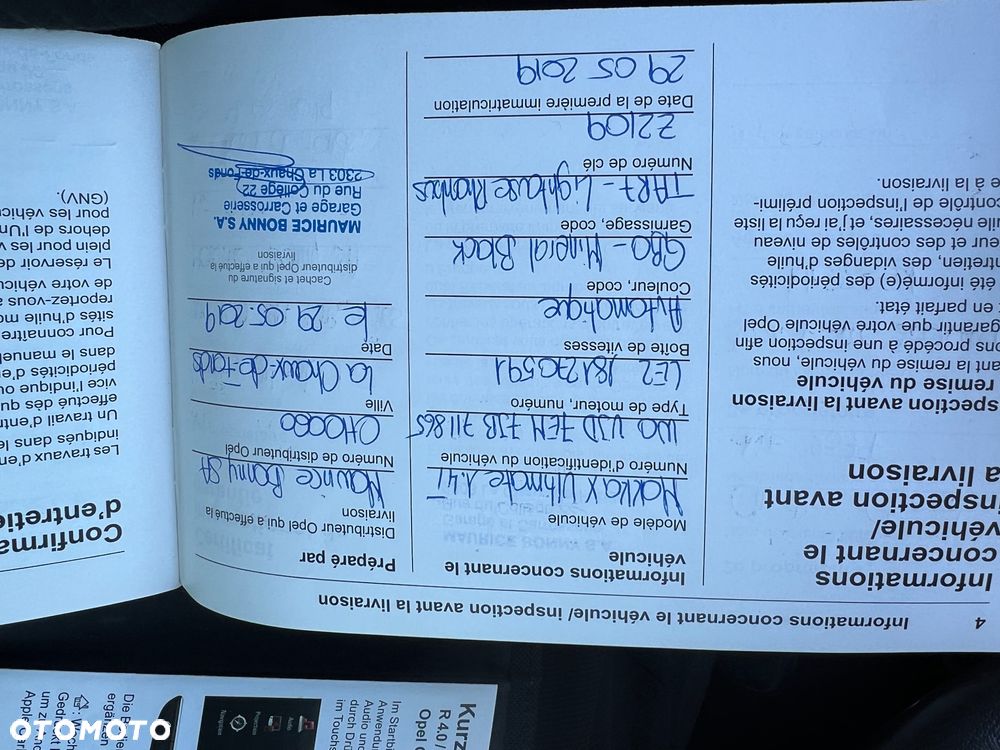 4 Informations concernant le véhicule/ inspection avant la livraison
Informations
concernant le
véhicule/
inspection avant
la livraison
spection avant la livraison
remise du véhicule
ant la remise du véhicule, nous
ons procédé à une inspection afin
garantir que votre véhicule Opel
en parfait état.
été informé(e) des périodicités
ntretien, des vidanges d'huile
eur et des contrôles de niveau
uile nécessaires, et j'ai reçu la liste
contrôle de l'inspection prélimi-
e à la livraison.
Informations concernant le
véhicule
Modèle de véhicule
Mokka X Ultimate 1.4T
Numéro d'identification du véhicule
Type de moteur, numéro
LE2
Boîte de vitesses
Automatique
Couleur, code
GBO - Mineral Black
Garnissage, code
TAR7 -
Numéro de clé
Z2109
Date de la première immatriculation
29 05 2019
Préparé par
Distributeur Opel qui a effectué la
livraison
Maurice Bonny SA
Numéro de distributeur Opel
Ville
La Chaux-de-Fonds
Date
le 29.05.2019
Cachet et signature du
distributeur Opel qui a effectué la
livraison
MAURICE BONNY S.A.
Garage et Carrosserie
Rue du Collège 22
2303 La Chaux-de-Fonds
Confirma
d'entretie
Les travaux d'en
indiqués dans le
Un travail d'entr
effectué dès qu
vice l'indique ou
périodicités d'e
dans le manuel
Pour connaître
sités d'huile mo
reportez-vous a
de votre véhicu
Le réservoir de
plein pour les v
dehors de l'Un
pour les véhicu
(GNV).
Kurz
R 4.0 /
Opel
Im Startb
Anwendu
Audio un
durch Drü
im Touchs
Audio
Navigation
Die B
ergänzen
Gedrückt
um z
Apple
OTOMOTO